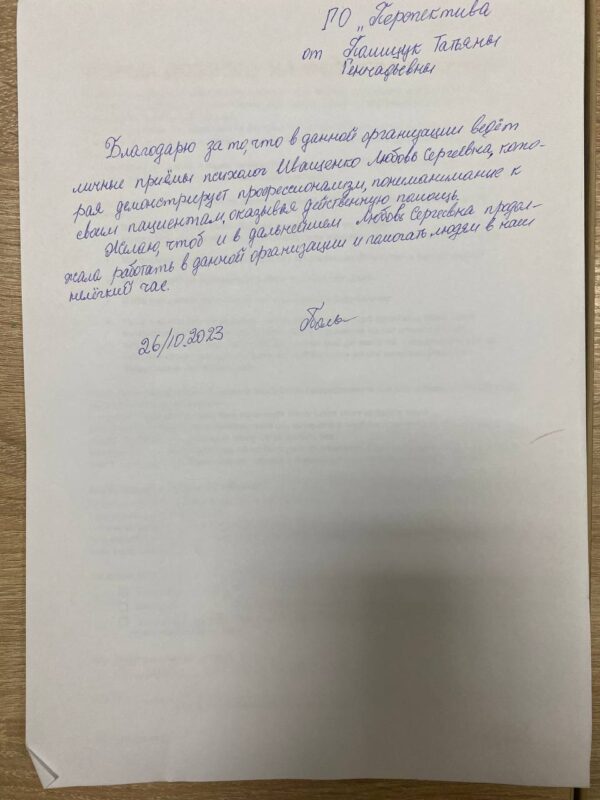 ПО „Перспектива
от Полищук Татьяны
Геннадьевны
Благодарю за то, что в данной организации ведёт
личные приёмы психолог Иващенко Любовь Сергеевна, кото-
рая демонстрирует профессионализм, пониманимание к
своим пациентам, оказывая действенную помощь.
Желаю, чтоб и в дальнейшем Любовь Сергеевна продол-
жала работать в данной организации и помогать людям в наш
нелёгкий час.
26/10.2023